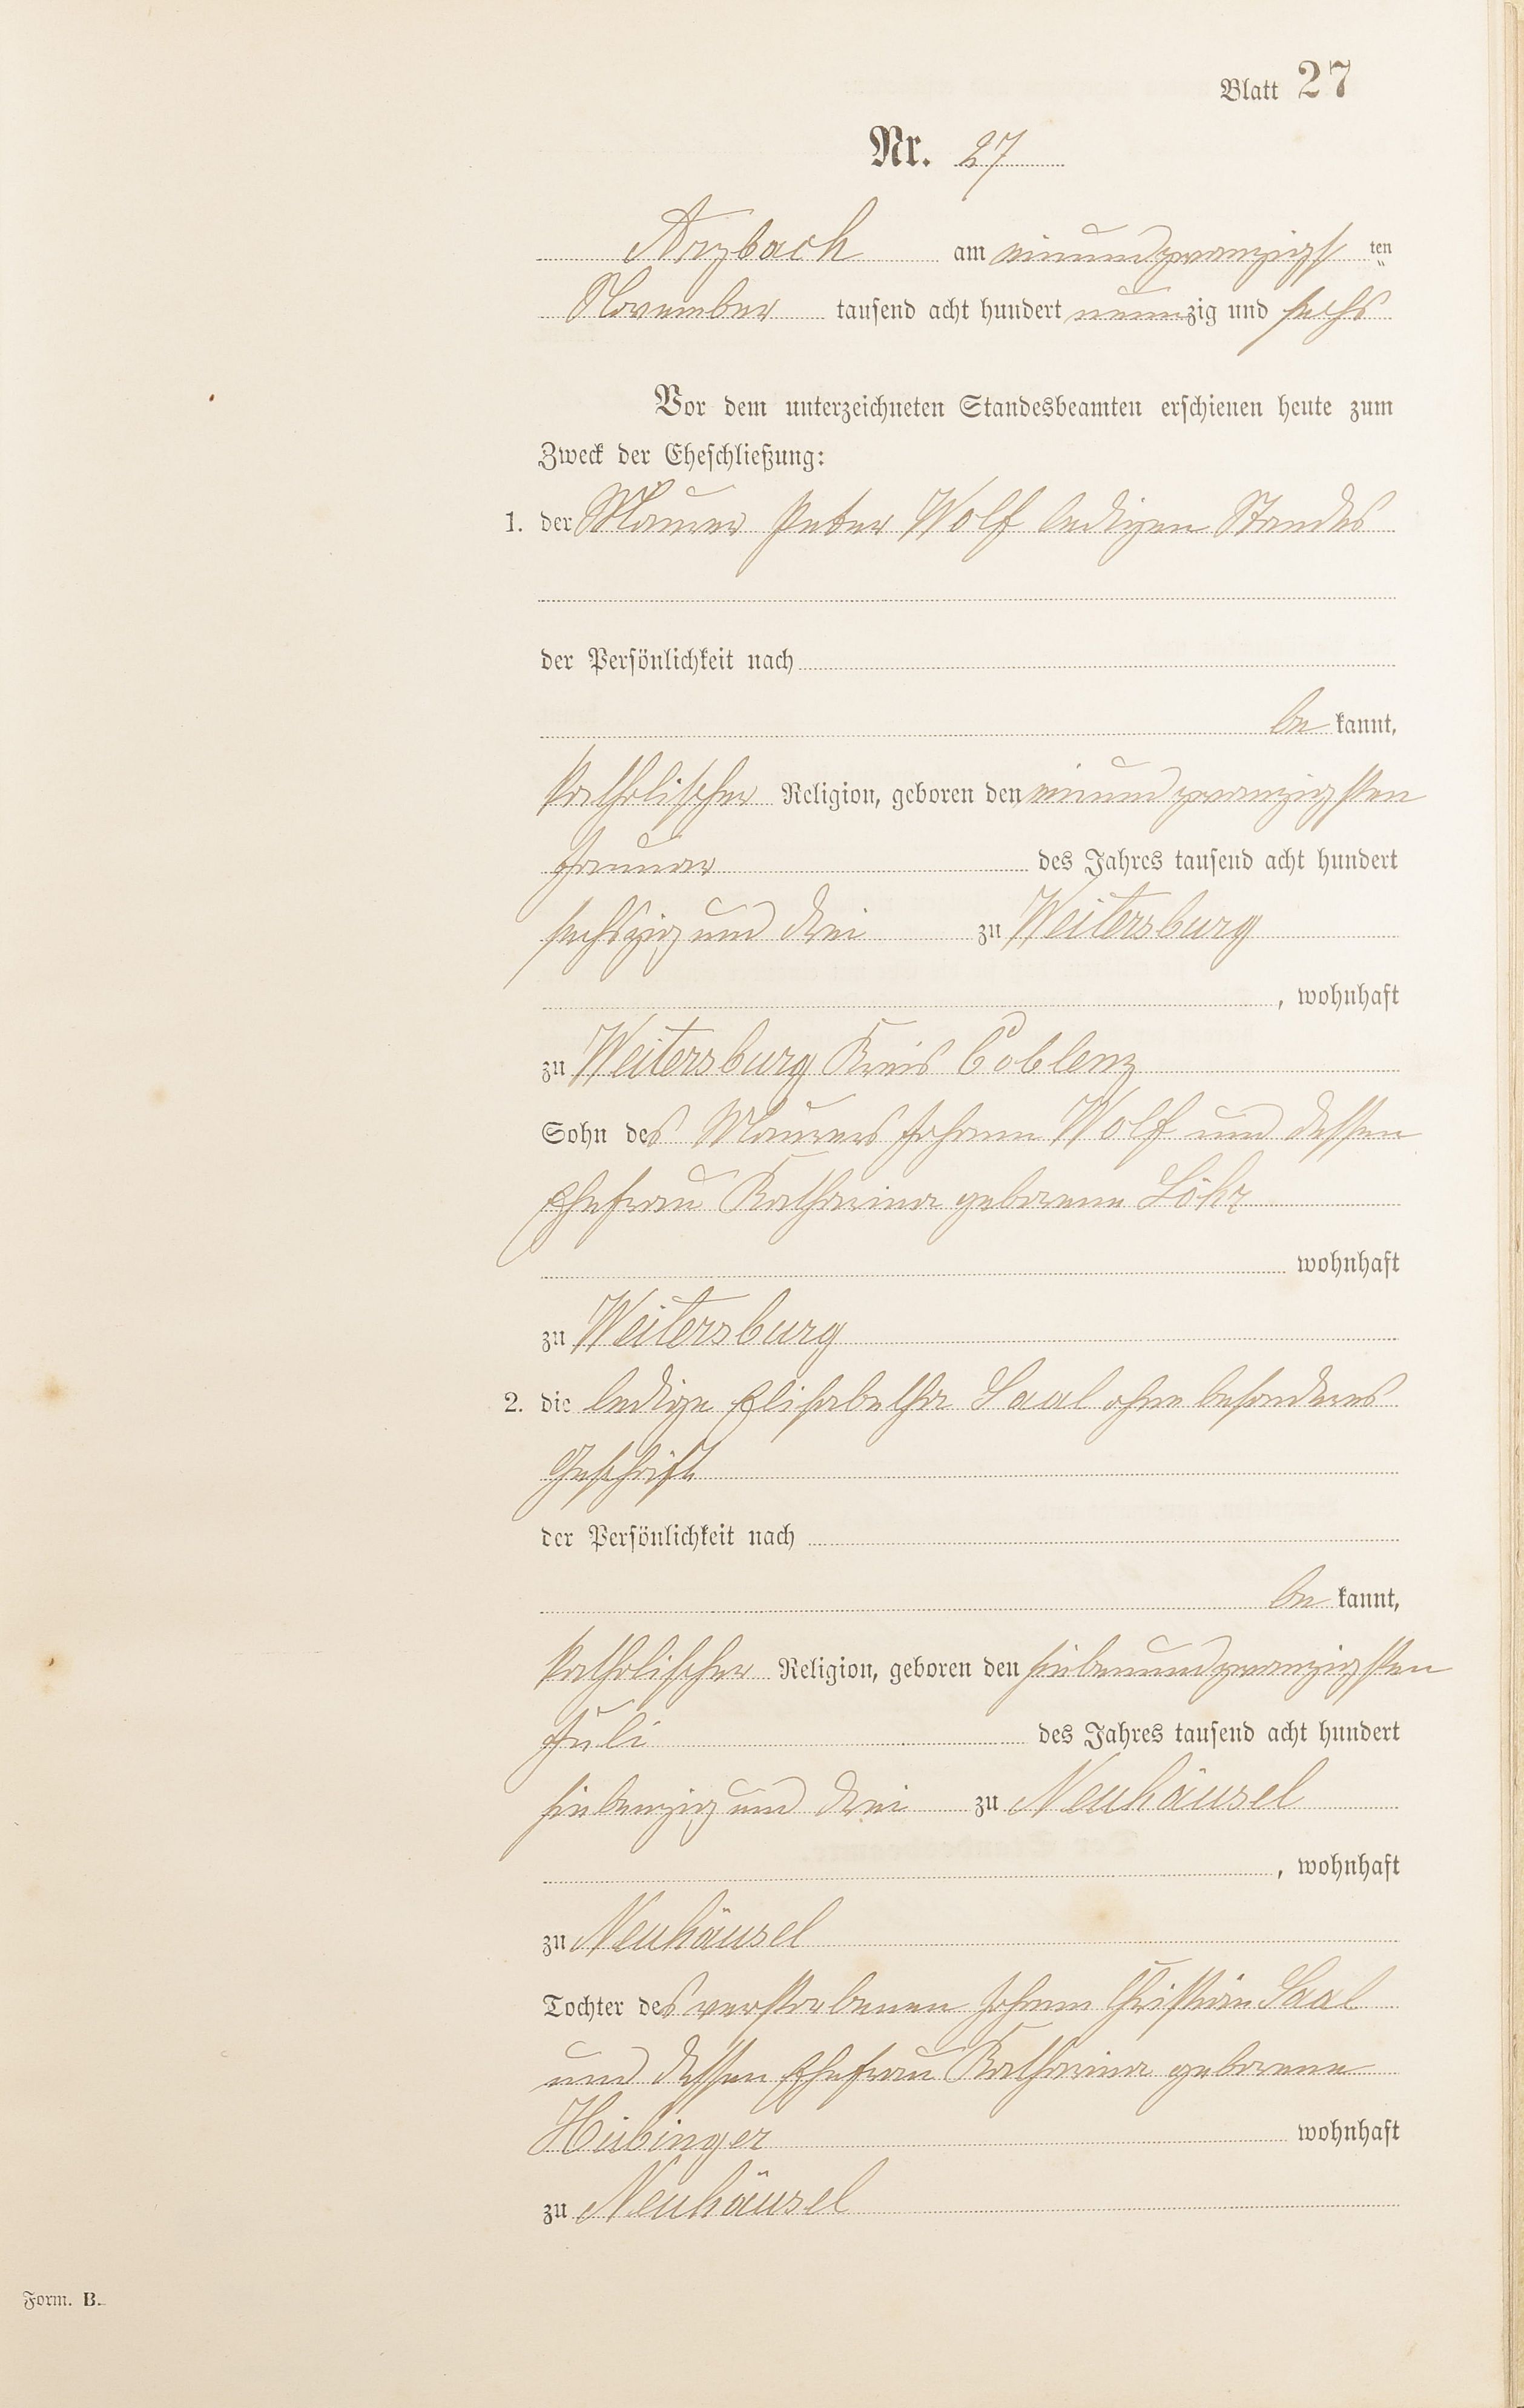 Blatt 27
Nr. 27
Arzbach am einundzwanzigst ten
November tausend acht hundert neunzig und sechs
Vor dem unterzeichneten Standesbeamten erschienen heute zum
Zweck der Eheschließung:
1. der Maurer Peter Wolf ledigen Standes
der Persönlichkeit nach
be kannt,
katholischer Religion, geboren den einundzwanzigsten
Januar des Jahres tausend acht hundert
sechszig und drei zu Weitersburg
, wohnhaft
zu Weitersburg Kreis Coblenz
Sohn des Maurers Johann Wolf und dessen
Ehefrau Katharina geborene Löhr
wohnhaft
zu Weitersburg
2. die ledige Elisabetha Saal ohne besonderes
Geschäft
der Persönlichkeit nach
be kannt,
katholischer Religion, geboren den siebenundzwanzigsten
Juli des Jahres tausend acht hundert
siebenzig und drei zu Neuhäusel
, wohnhaft
zu Neuhäusel
Tochter des verstorbenen Johann Christian Saal
und dessen Ehefrau Katharina geborene
Hübinger wohnhaft
zu Neuhäusel
Form. B.